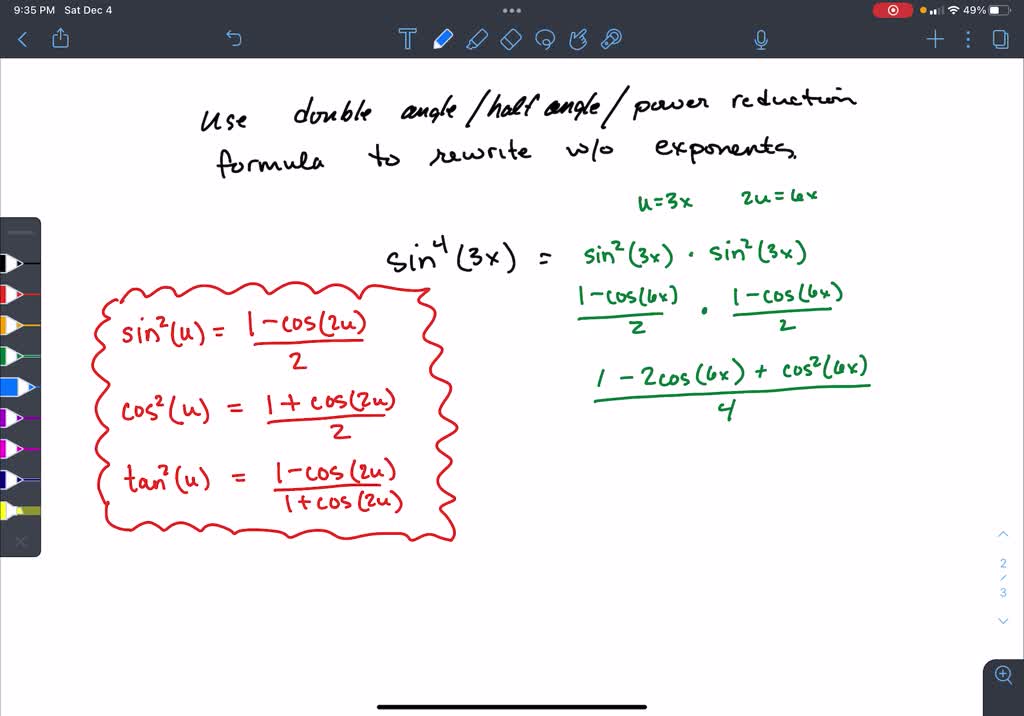 9:35 PM Sat Dec 4
49%
T
use double angle/half angle/power reduction
formula to rewrite w/o exponents.
u=3x 2u=6x
sin⁴(3x) = sin²(3x) · sin²(3x)
1-cos(6x)/2 · 1-cos(6x)/2
1-2cos(6x)+cos²(6x)/4
sin²(u) = 1-cos(2u)/2
cos²(u) = 1+cos(2u)/2
tan²(u) = 1-cos(2u)/1+cos(2u)
2
/
3